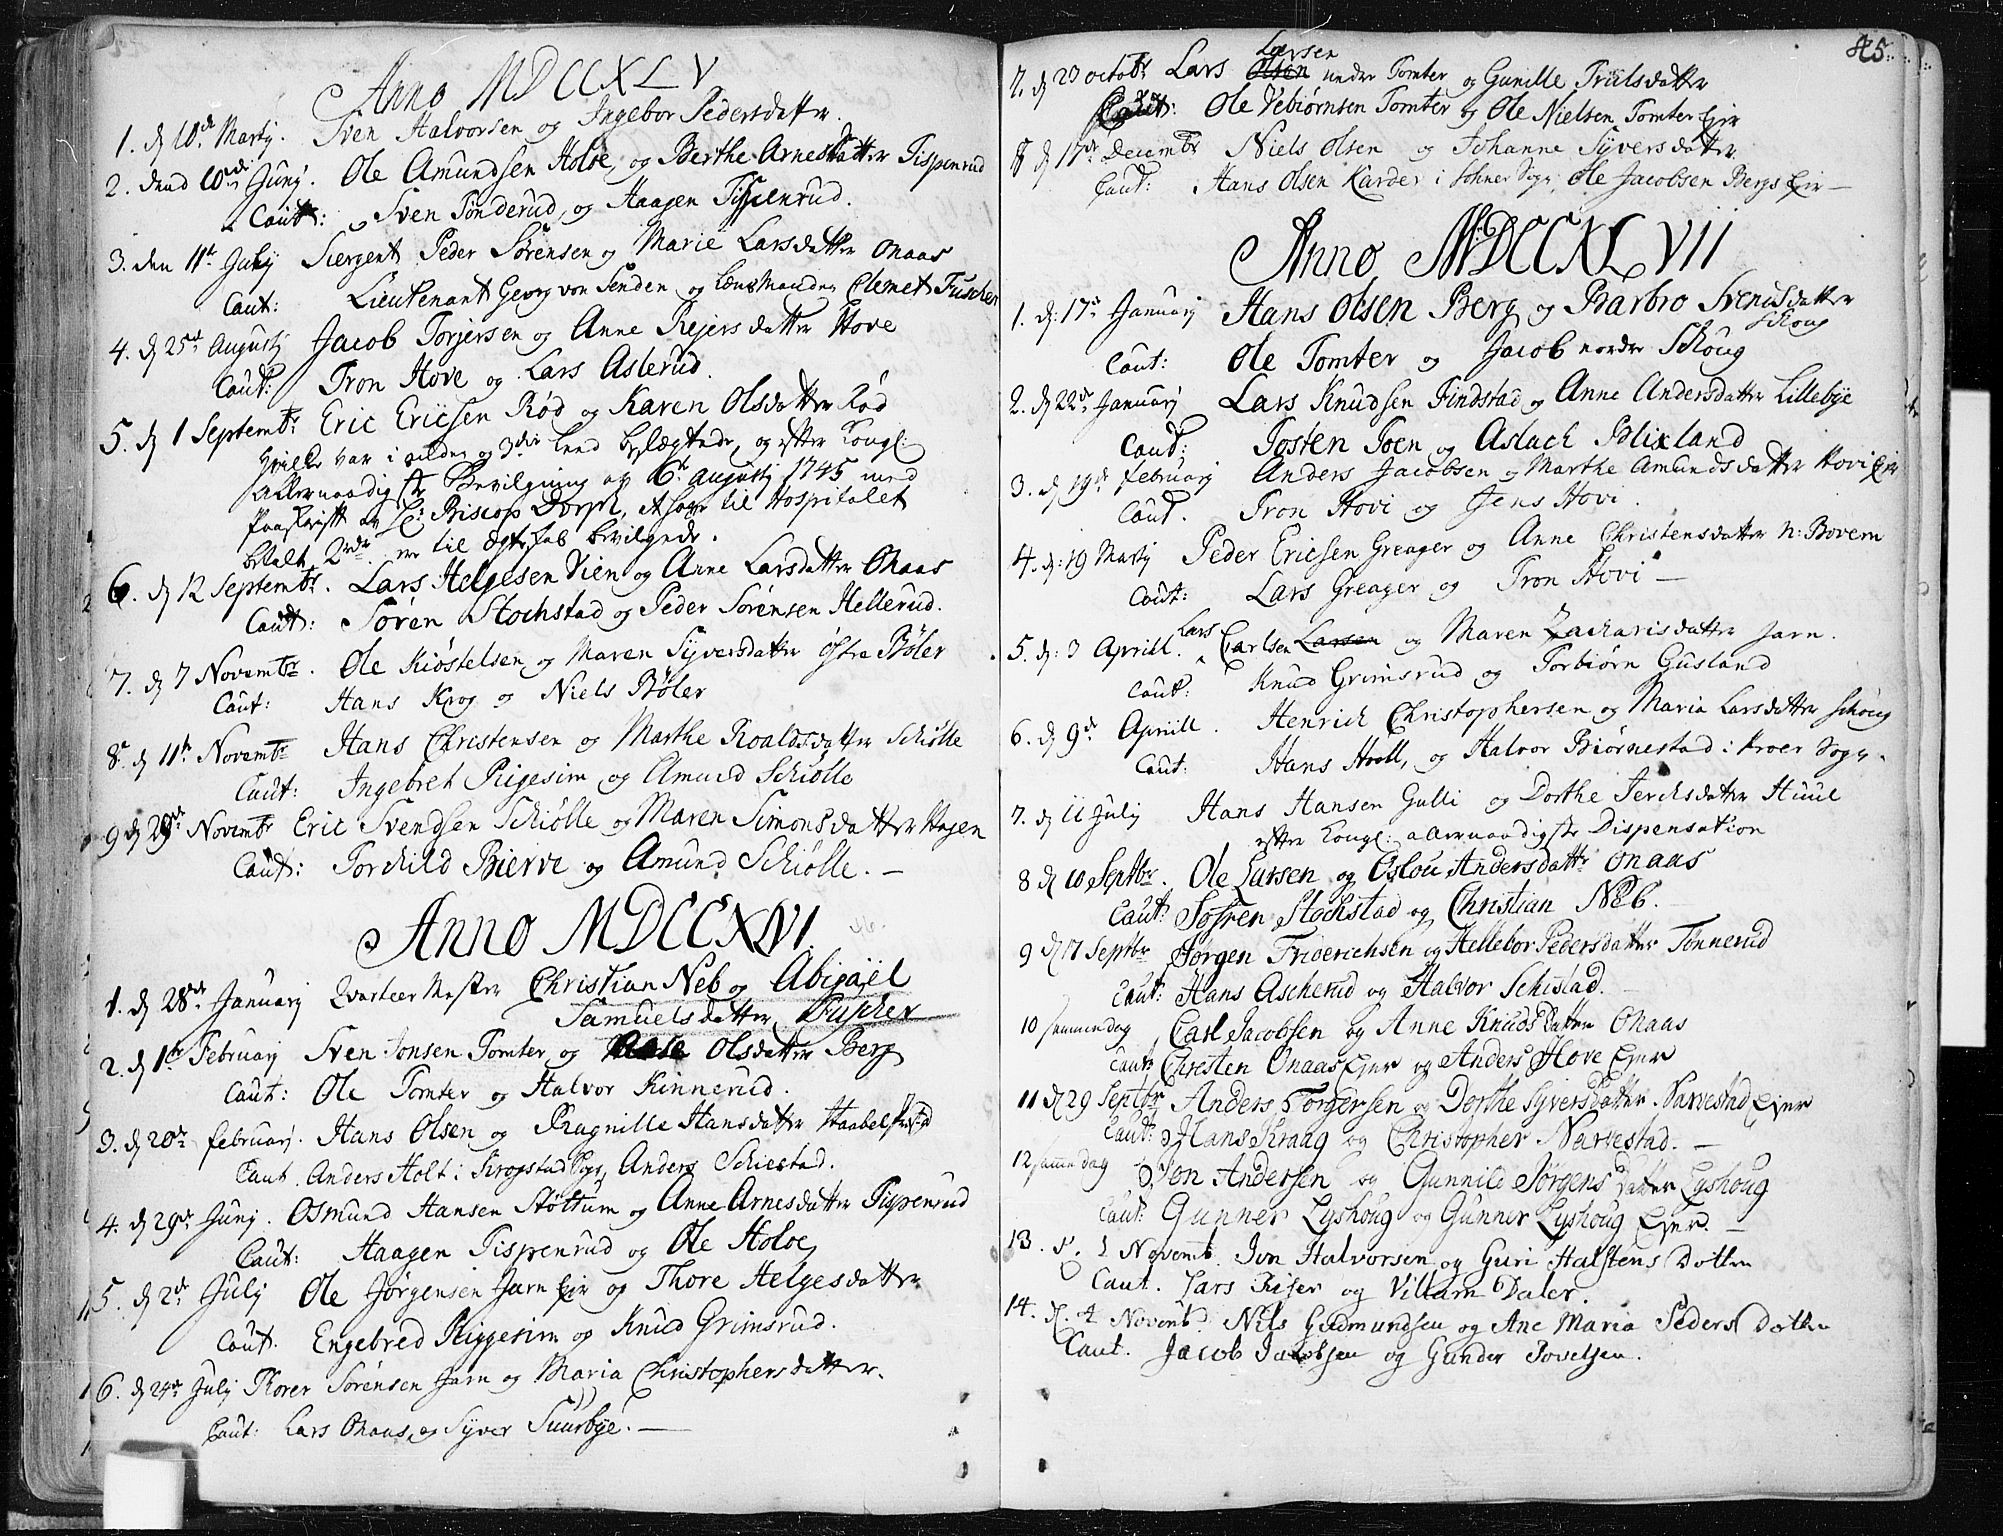 Anno MDCCXLV
1. d 10de Martj. Sven Halvorsen og Ingebor Pedersdatter.
2. dend 10de Junj. Ole Amundsen Holøe, og Berthe Arnesdatter Tispenrud
Caut: Sven Sønderud, og Haagen Tispenrud.
3. den 11te July Siergent Peder Sørensen og Marie Larsdatter Onaas
Caut: Lieutenant Georg von Senden og Lænsmanden Clemet Fuscher
4. d 25de Augustj Jacob Torjersen og Anne Rejersdatter Hove
Caut: Tron Hove og Lars Aslerud.
5. d 1 Septembr. Eric Ericsen Rød og Karen Olsdatter Rød
hvilke var i anden og 3die Leed beslægtede, og efter Kongl:
allernaadigste Bevilgning af 6te Augustj 1745 med
Paaskrift af Hr: Biscop Dorph, at have til Hospitalet
betalt 2rdr. er til Ægteskab bevilgede.
6. d 12 Septembr. Lars Helgesen Vien og Anne Larsdatter Onaas
Caut: Søren Stochstad og Peder Sørensen Hellerud.
7. d 7 Novembr. Ole Kiøstelsen og Maren Syversdatter østre Bøler
Caut: Hans Krog og Niels Bøler
8. d 11te Novembr Hans Christensen og Marthe Roaldsdatter Schiølle
Caut: Ingebret Rigesim og Amund Schiølle
9 d 29de Novembr Eric Svendsen Schiølle og Maren Simonsdatter Hagen
Caut: Torchild Bierve og Amund Schiølle. —
Anno MDCCXLVI. 46.
1. d 28de Januarj Qvarteer Mester Christian Neb og Abigaël
Samuelsdatter Fuscher
2. d 1te Februarj Sven Jonsen Tomter og Olsdatter Berg
Caut: Ole Tomter og Halvor Kinnerud.
3. d 20de februarj. Hans Olsen og Ragnille Hansdatter
Caut. Anders Holt i Krogstad Sogn, Anders Schiestad.
4. d 29de Junj. Osmund Hansen Støltum og Anne Arnesdatter Tispenrud
Caut: Haagen Tispenrud og Ole Holøe
5. d 2de July Ole Jørgensen Jarn Eir og Thore Helgesdatter
Caut. Engebred Riggesim og Knud Grimsrud.
6. d 24de July Thorer Sørensen Jarn og Maria Christophersdatter.
Caut: Lars Onaas, og Syver Suurbye. —
45.
7. d 23 octobr Lars Olsen Larsen nedre Tomter og Gunille Trulsdatter
Caut: Ole Vebiørnsen Tomter og Ole Nielsen Tomter Eir
8 d 17de Decembr Niels Olsen og Johanne Syversdatter
Caut: Hans Olsen Karder i Sohner Sogn, Ole Jacobsen Bergs Eir —
Anno MDCCXLVII
1. d: 17de Januarj Hans Olsen Berg og Barbro Svensdatter
Schoug
Caut: Ole Tomter og Jacob nordre Schoug
2. d 22de Januarj Lars Knudsen Findstad og Anne Andersdatter Lillebye
Caut: Tosten Toen og Aslach Blixland
3. d 19de februarj Anders Jacobsen og Marthe Amundsdatter Hovi Eir
Caut. Tron Hovi og Jens Hovi.
4. d: 19 Martj Peder Ericsen Greager og Anne Christensdatter n: Bovem
Caut: Lars Greager og Tron Hovi —
5. d: 3 Aprill. Lars Carlsen Larsen og Maren Zacharisdatter Jarn.
Caut: Knud Grimsrud og Torbiørn Gusland
6. d 9de Aprill. Henrich Christophersen og Maria Larsdatter Schoug
Caut: Hans Holl, og Halvor Biørnestad i Kroer Sogn.
7. d 11 July Hans Hansen Gulli og Dorthe Jerchsdatter Huul
efter Kongl: allernaadigste Dispensation
8 d 10 Septbr. Ole Larsen og Oslou Andersdattr Onaas
Caut: Søfren Stochstad og Christian Neb.
9 d 17 Septbr Jørgen Friderichsen og Hellebor Pedersdatter Tønnerud
Caut: Hans Ascherud og Halvor Schistad.
10 sammendag Carl Jacobsen og Anne Knudsdatter Onaas
Caut: Christen Onaas Ejer og Anders Hove Ejer
11 d 29 Septbr Anders Torgersen og Dorthe Syversdatter Narvestad Ejer
Caut: Hans Kraag og Christopher Narvestad. —
12 samedag Jon Andersen og Gunnild Jørgens datter Lyshoug
Caut: Gunner Lyshoug og Gunner Lyshoug Ejer. —
13. d. 1 Novemb. Jon Halvorsen og Guri Halstens Dotter
Caut. Lars Riser og Villum Daler.
14. d. 4 Novemb. Nils Gudmundsen og Ane Maria Peders dotter
Caut. Jacob Jacobsen og Gunder Joveisen.